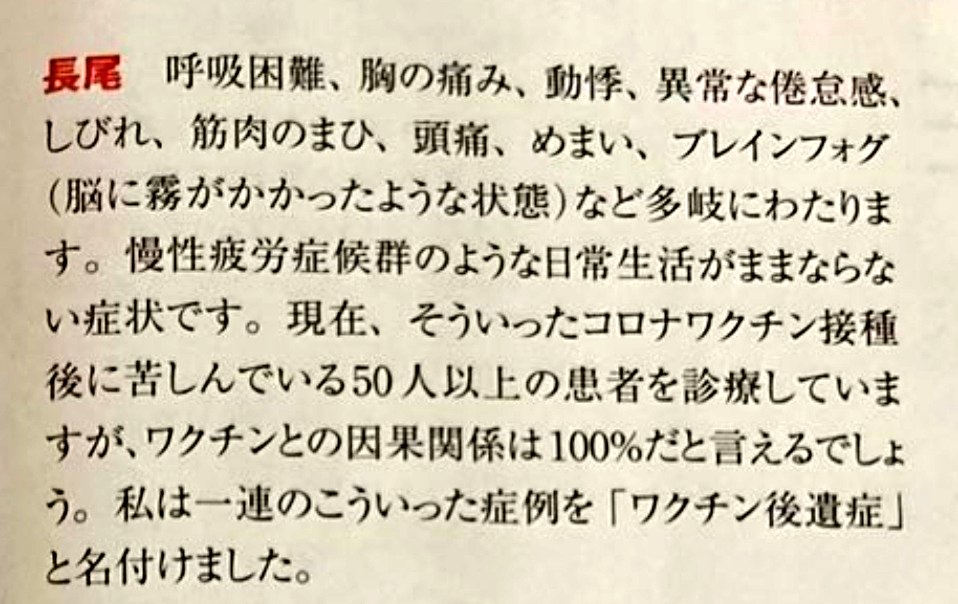 長尾　呼吸困難、胸の痛み、動悸、異常な倦怠感、
しびれ、筋肉のまひ、頭痛、めまい、ブレインフォグ
(脳に霧がかかったような状態)など多岐にわたりま
す。慢性疲労症候群のような日常生活がままならな
い症状です。現在、そういったコロナワクチン接種
後に苦しんでいる50人以上の患者を診療していま
すが、ワクチンとの因果関係は100%だと言えるでしょ
う。私は一連のこういった症例を「ワクチン後遺症」
と名付けました。